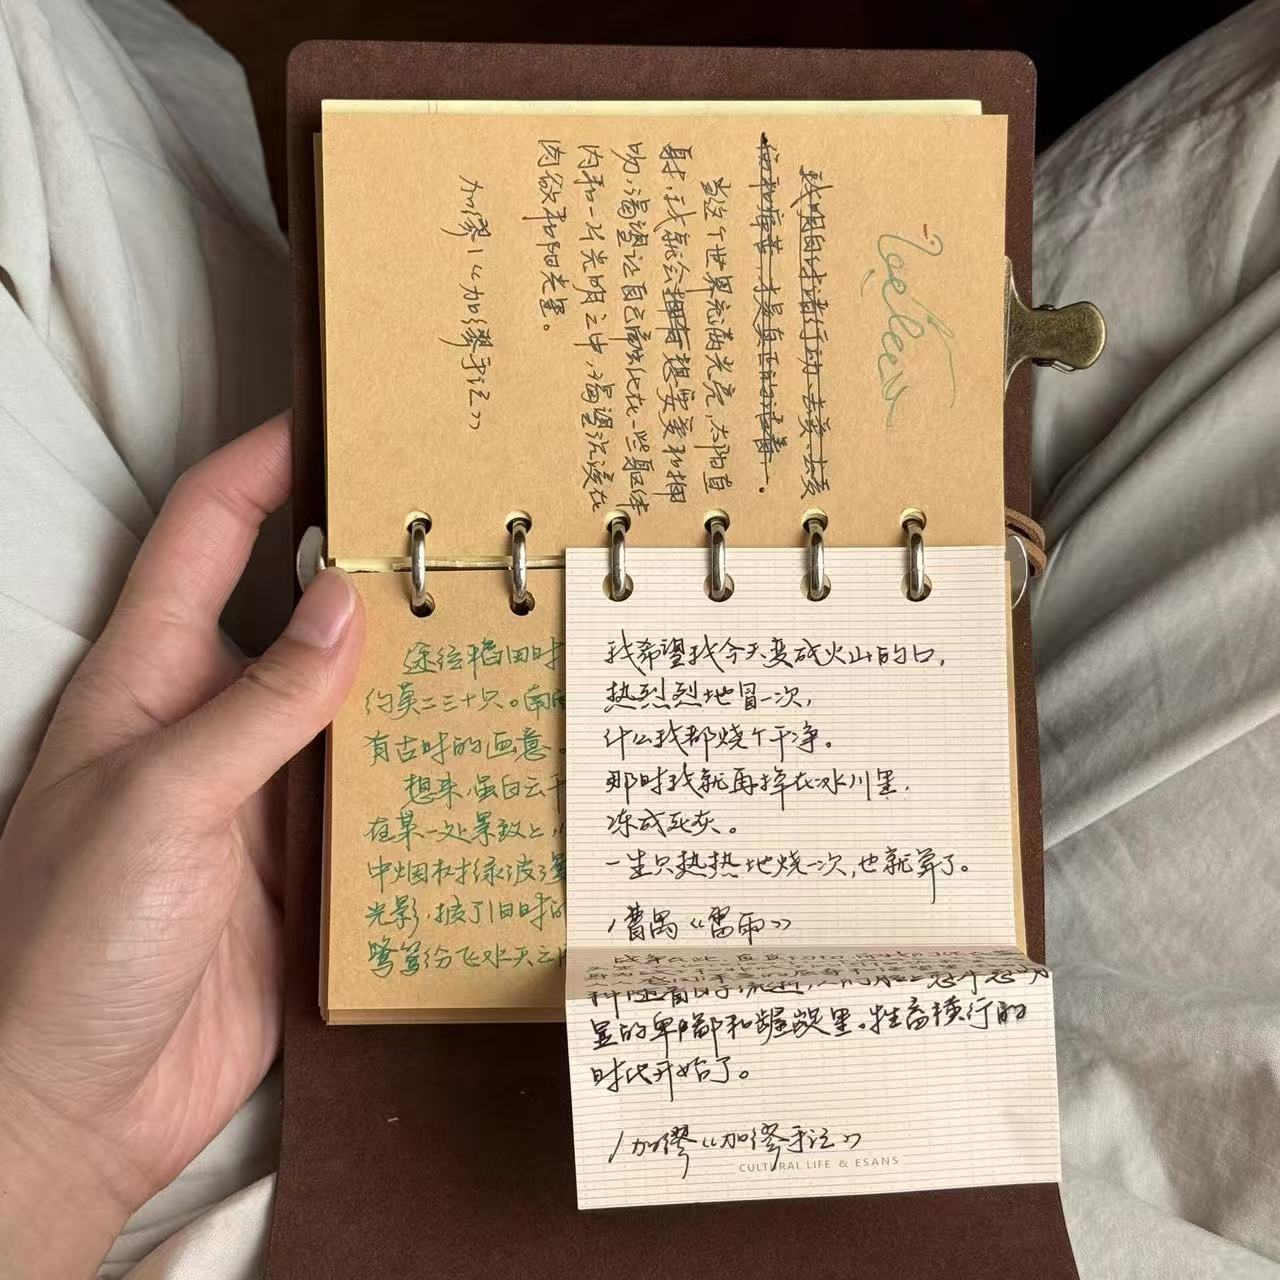 我明白时请行动、去爱、去受
伤和痛苦，才是真正的活着。
当这个世界充满光亮，太阳直
射，我就会拥有想要爱和拥
吻，渴望让自己容化在一些躯体
内和一片光明之中，渴望沉浸在
肉欲和阳光里。
加缪 / 《加缪手记》
途经稻田时
约莫二三十只。
有古时的画意。
想来，虽白云千
在某一处景致上，
中烟村绿波
光影，掖了旧时的
鹭鸶纷飞水天之
我希望我今天变成火山的口，
热烈烈地冒一次，
什么我都烧个干净。
那时我就再掉在冰川里，
冻成死灰。
一生只热热地烧一次，也就算了。
/曹禺《雷雨》
显的卑鄙和龌龊里。牲畜横行的
时代开始了。
/加缪《加缪手记》
CULTURAL LIFE & ESANS